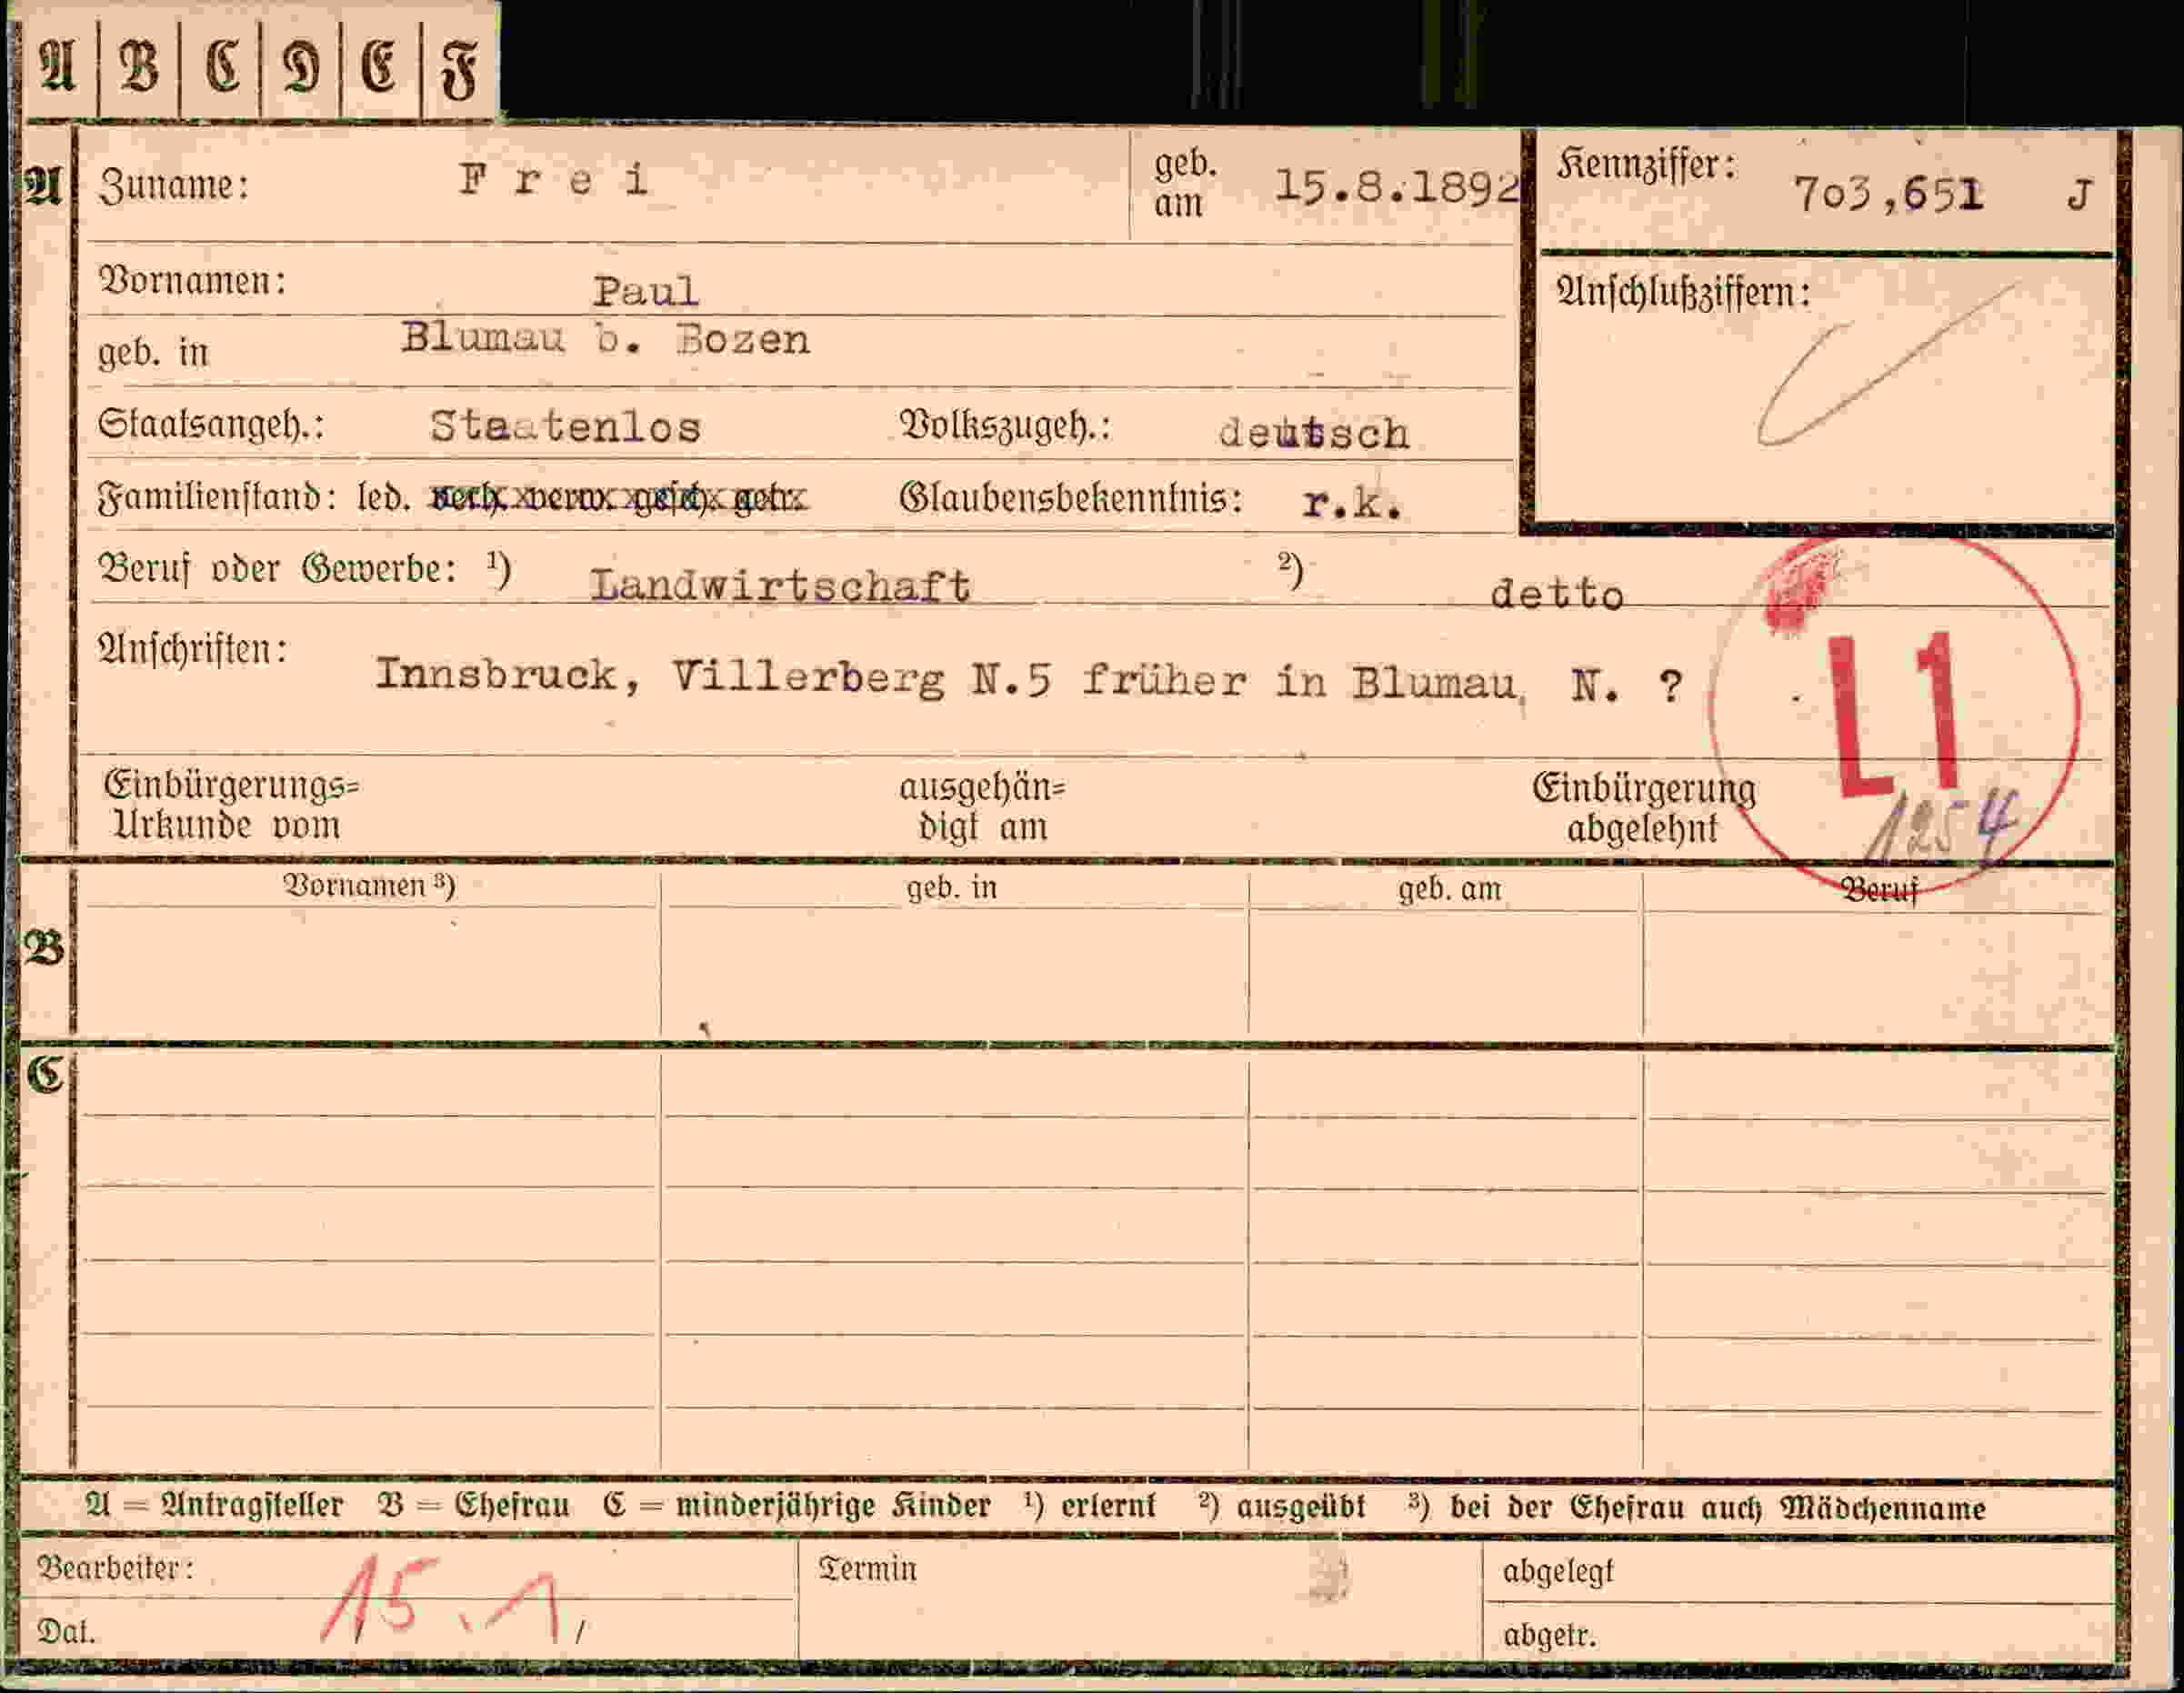 A B C D E F
A Zuname: Frei geb. am 15.8.1892 Kennziffer: 703,651 J
Vornamen: Paul Anschlußziffern:
geb. in Blumau b. Bozen
Staatsangeh.: Staatenlos Volkszugeh.: deutsch
Familienstand: led. verh. verw. gesch. getr. Glaubensbekenntnis: r.k.
Beruf oder Gewerbe: ¹) Landwirtschaft ²) detto
Anschriften: Innsbruck, Villerberg N.5 früher in Blumau, N. ?
L1
Einbürgerungs= ausgehän= Einbürgerung
Urkunde vom digt am abgelehnt 1254
B Vornamen ³) geb. in geb. am Beruf
C
A = Antragsteller B = Ehefrau C = minderjährige Kinder ¹) erlernt ²) ausgeübt ³) bei der Ehefrau auch Mädchenname
Bearbeiter: 15.1/ Termin abgelegt
Dat. abgetr.